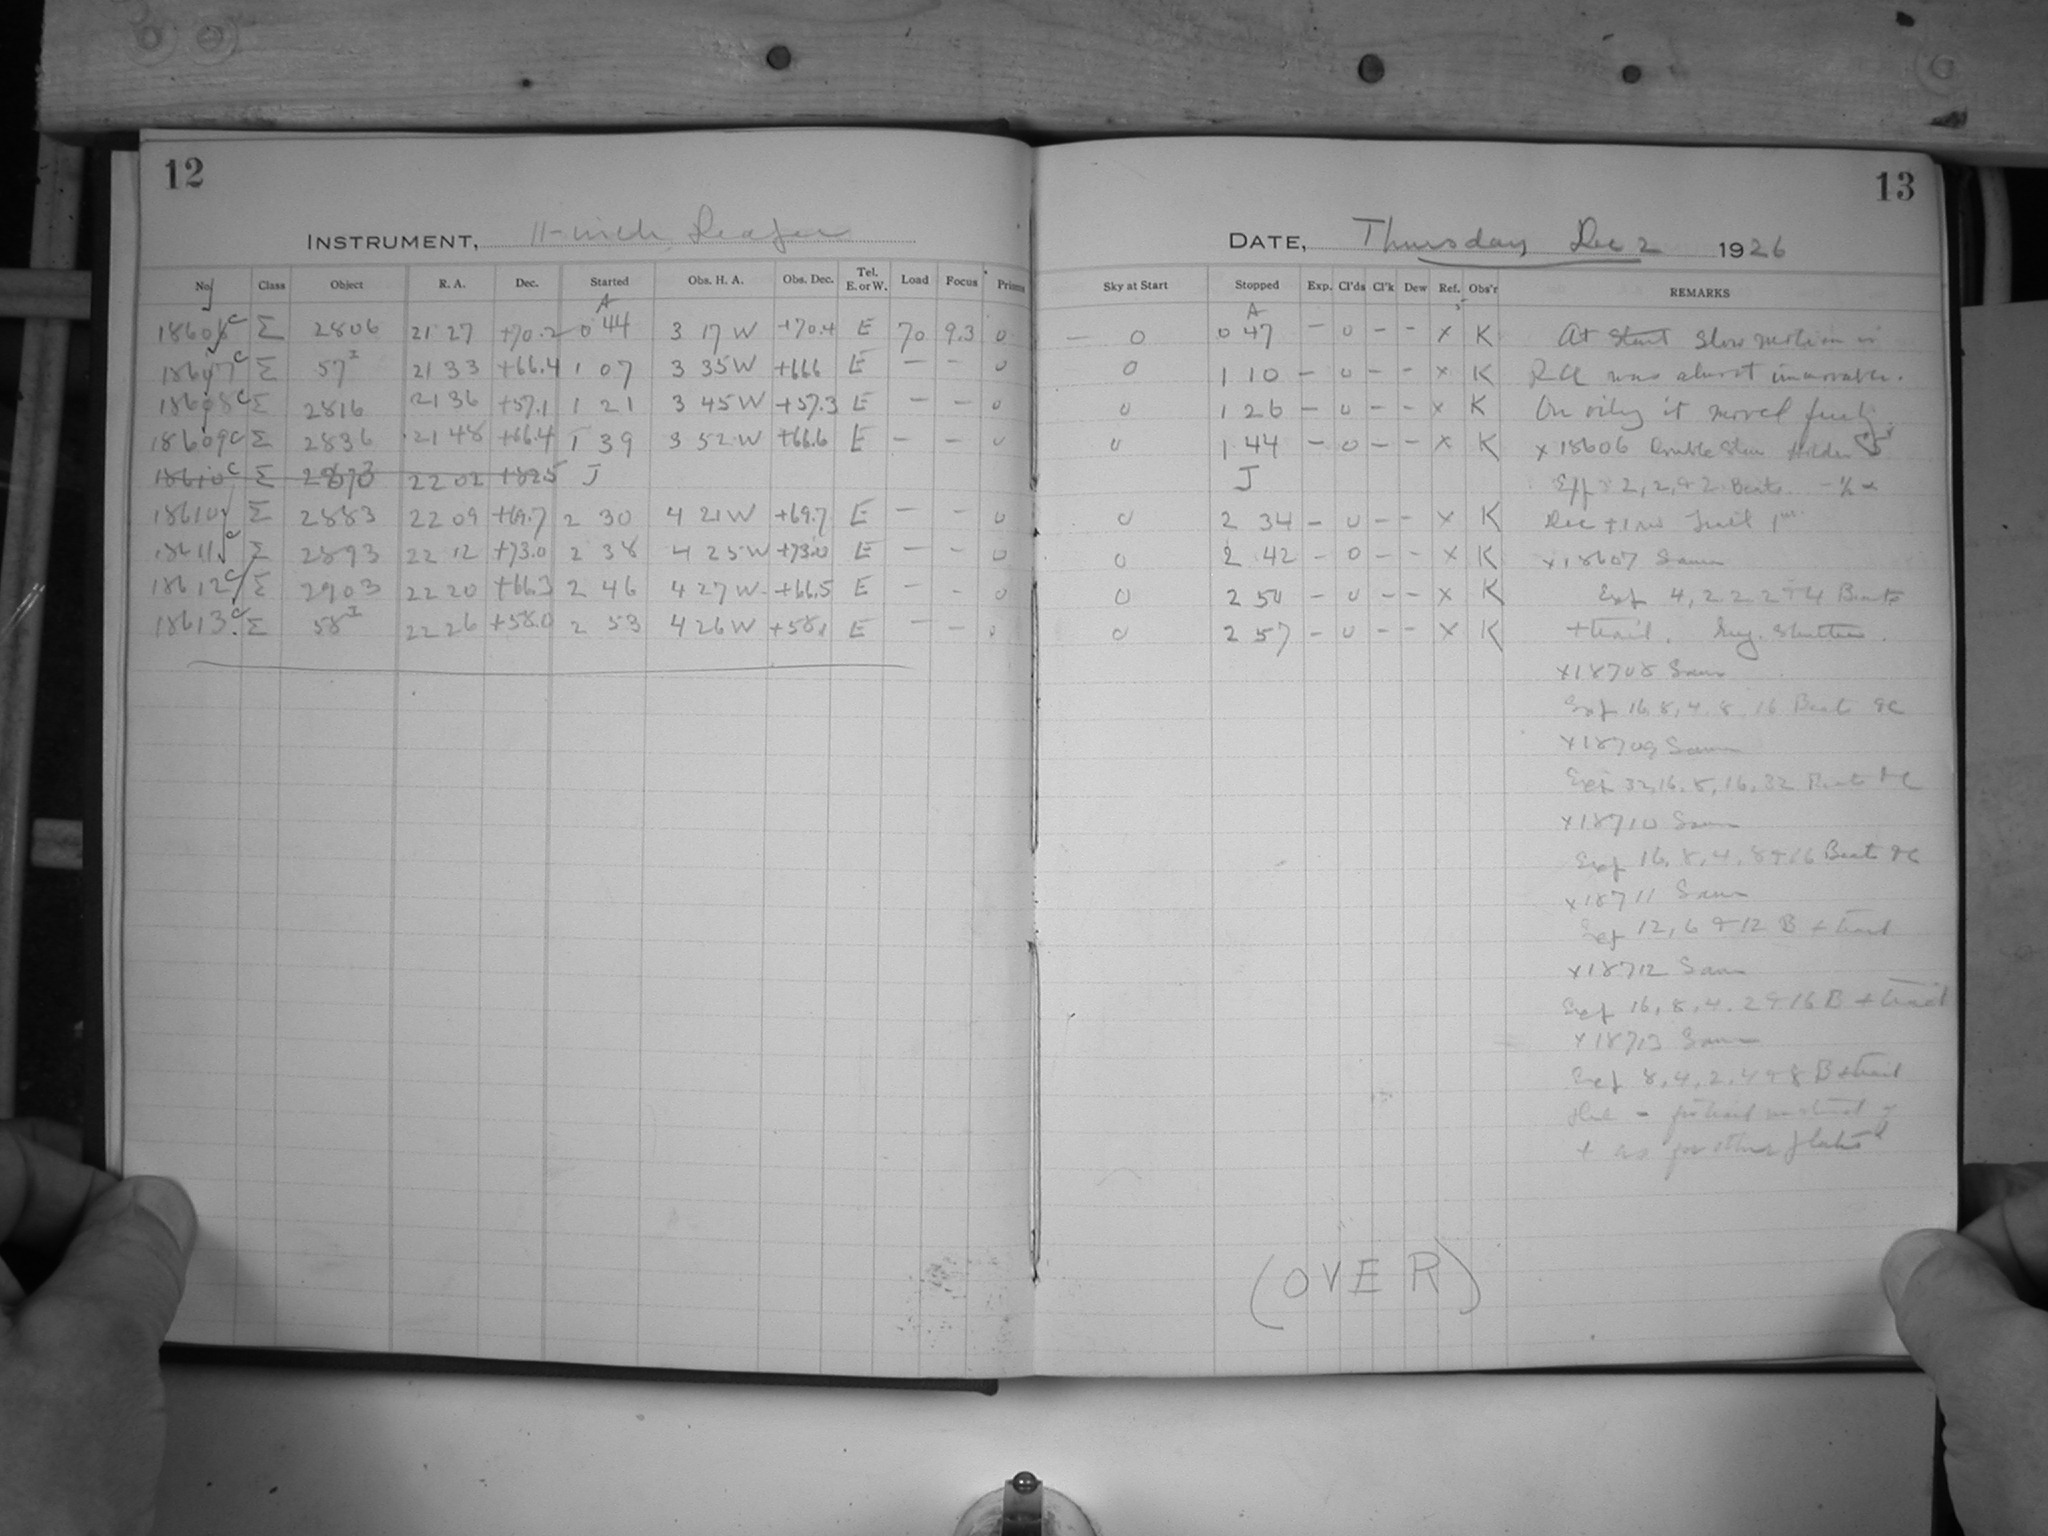 12
INSTRUMENT, 11-inch Draper
No. Class Object R. A. Dec. Started Obs. H. A. Obs. Dec. Tel. E. or W. Load Focus Prisms
A
18606 C Σ 2806 21 27 +70.2 0 44 3 17 W +70.4 E 70 9.3 0
18607 C Σ 57 I 21 33 +66.4 1 07 3 35 W +66.6 E — — 0
18608 C Σ 2816 21 36 +57.1 1 21 3 45 W +57.3 E — — 0
18609 C Σ 2836 21 48 +66.4 1 39 3 52 W +66.6 E — — 0
18610 C Σ 22 02 +82.5 J
18610 Σ 2883 22 09 +69.7 2 30 4 21 W +69.7 E — — 0
18611 C Σ 2893 22 12 +73.0 2 38 4 25 W +73.0 E — — 0
18612 C Σ 2903 22 20 +66.3 2 46 4 27 W +66.5 E — - 0
18613 C Σ 58 I 22 26 +58.0 2 53 4 26 W +58.1 E — — 0
13
DATE, Thursday Dec 2 1926
Sky at Start Stopped Exp. Cl'ds Cl'k Dew Ref. Obs'r REMARKS
A
— 0 0 47 — 0 — — x K At start slow motion in
0 1 10 — 0 — — x K RA was almost immovable.
0 1 26 — 0 — — x K On oiling it moved freely
0 1 44 — 0 — — x K x 18606 Double Slide Holder
J Exp 2, 2, + 2 Beats
0 2 34 — 0 — — x K Dec trail 1
0 2 42 — 0 — — x K x 18607 Same
0 2 50 — 0 — — x K Exp 4, 2 2 2 + 4 Beats
0 2 57 — 0 — — x K + trail. Shutter.
x 18708 Same
Exp 16, 8, 4, 8 16 Beats &c
x 18709 Same
Exp 32, 16, 8, 16, 32 Beats &c
x 18710 Same
Exp 16, 8, 4, 8 + 16 Beats &c
x 18711 Same
Exp 12, 6 + 12 B + trail
x 18712 Same
Exp 16, 8, 4, 2 + 16 B + trail
x 18713 Same
Exp 8, 4, 2, 4 + 8 B + trail
+ as for other plates
(OVER)